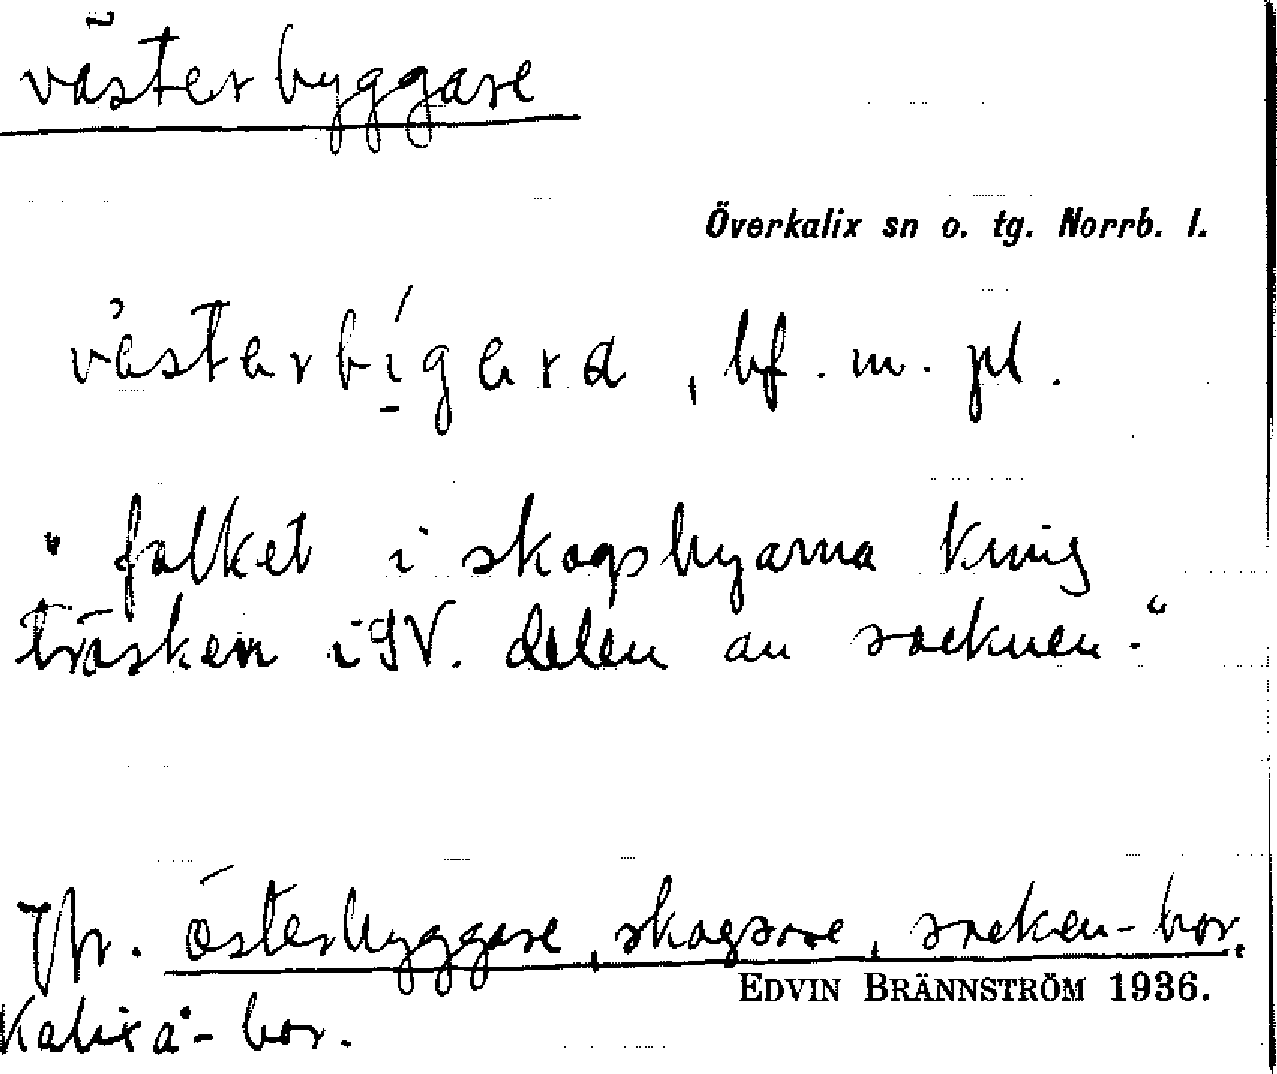 västerbyggare
Överkalix sn o. tg. Norrb. l.
västerbi̱gara, bf. m. pl.
"folket i skogsbyarna kring
träsken i SV. delen av socknen."
Jfr. österbyggare, skogsare, socken-bor,
Kalixå-bor.
EDVIN BRÄNNSTRÖM 1936.